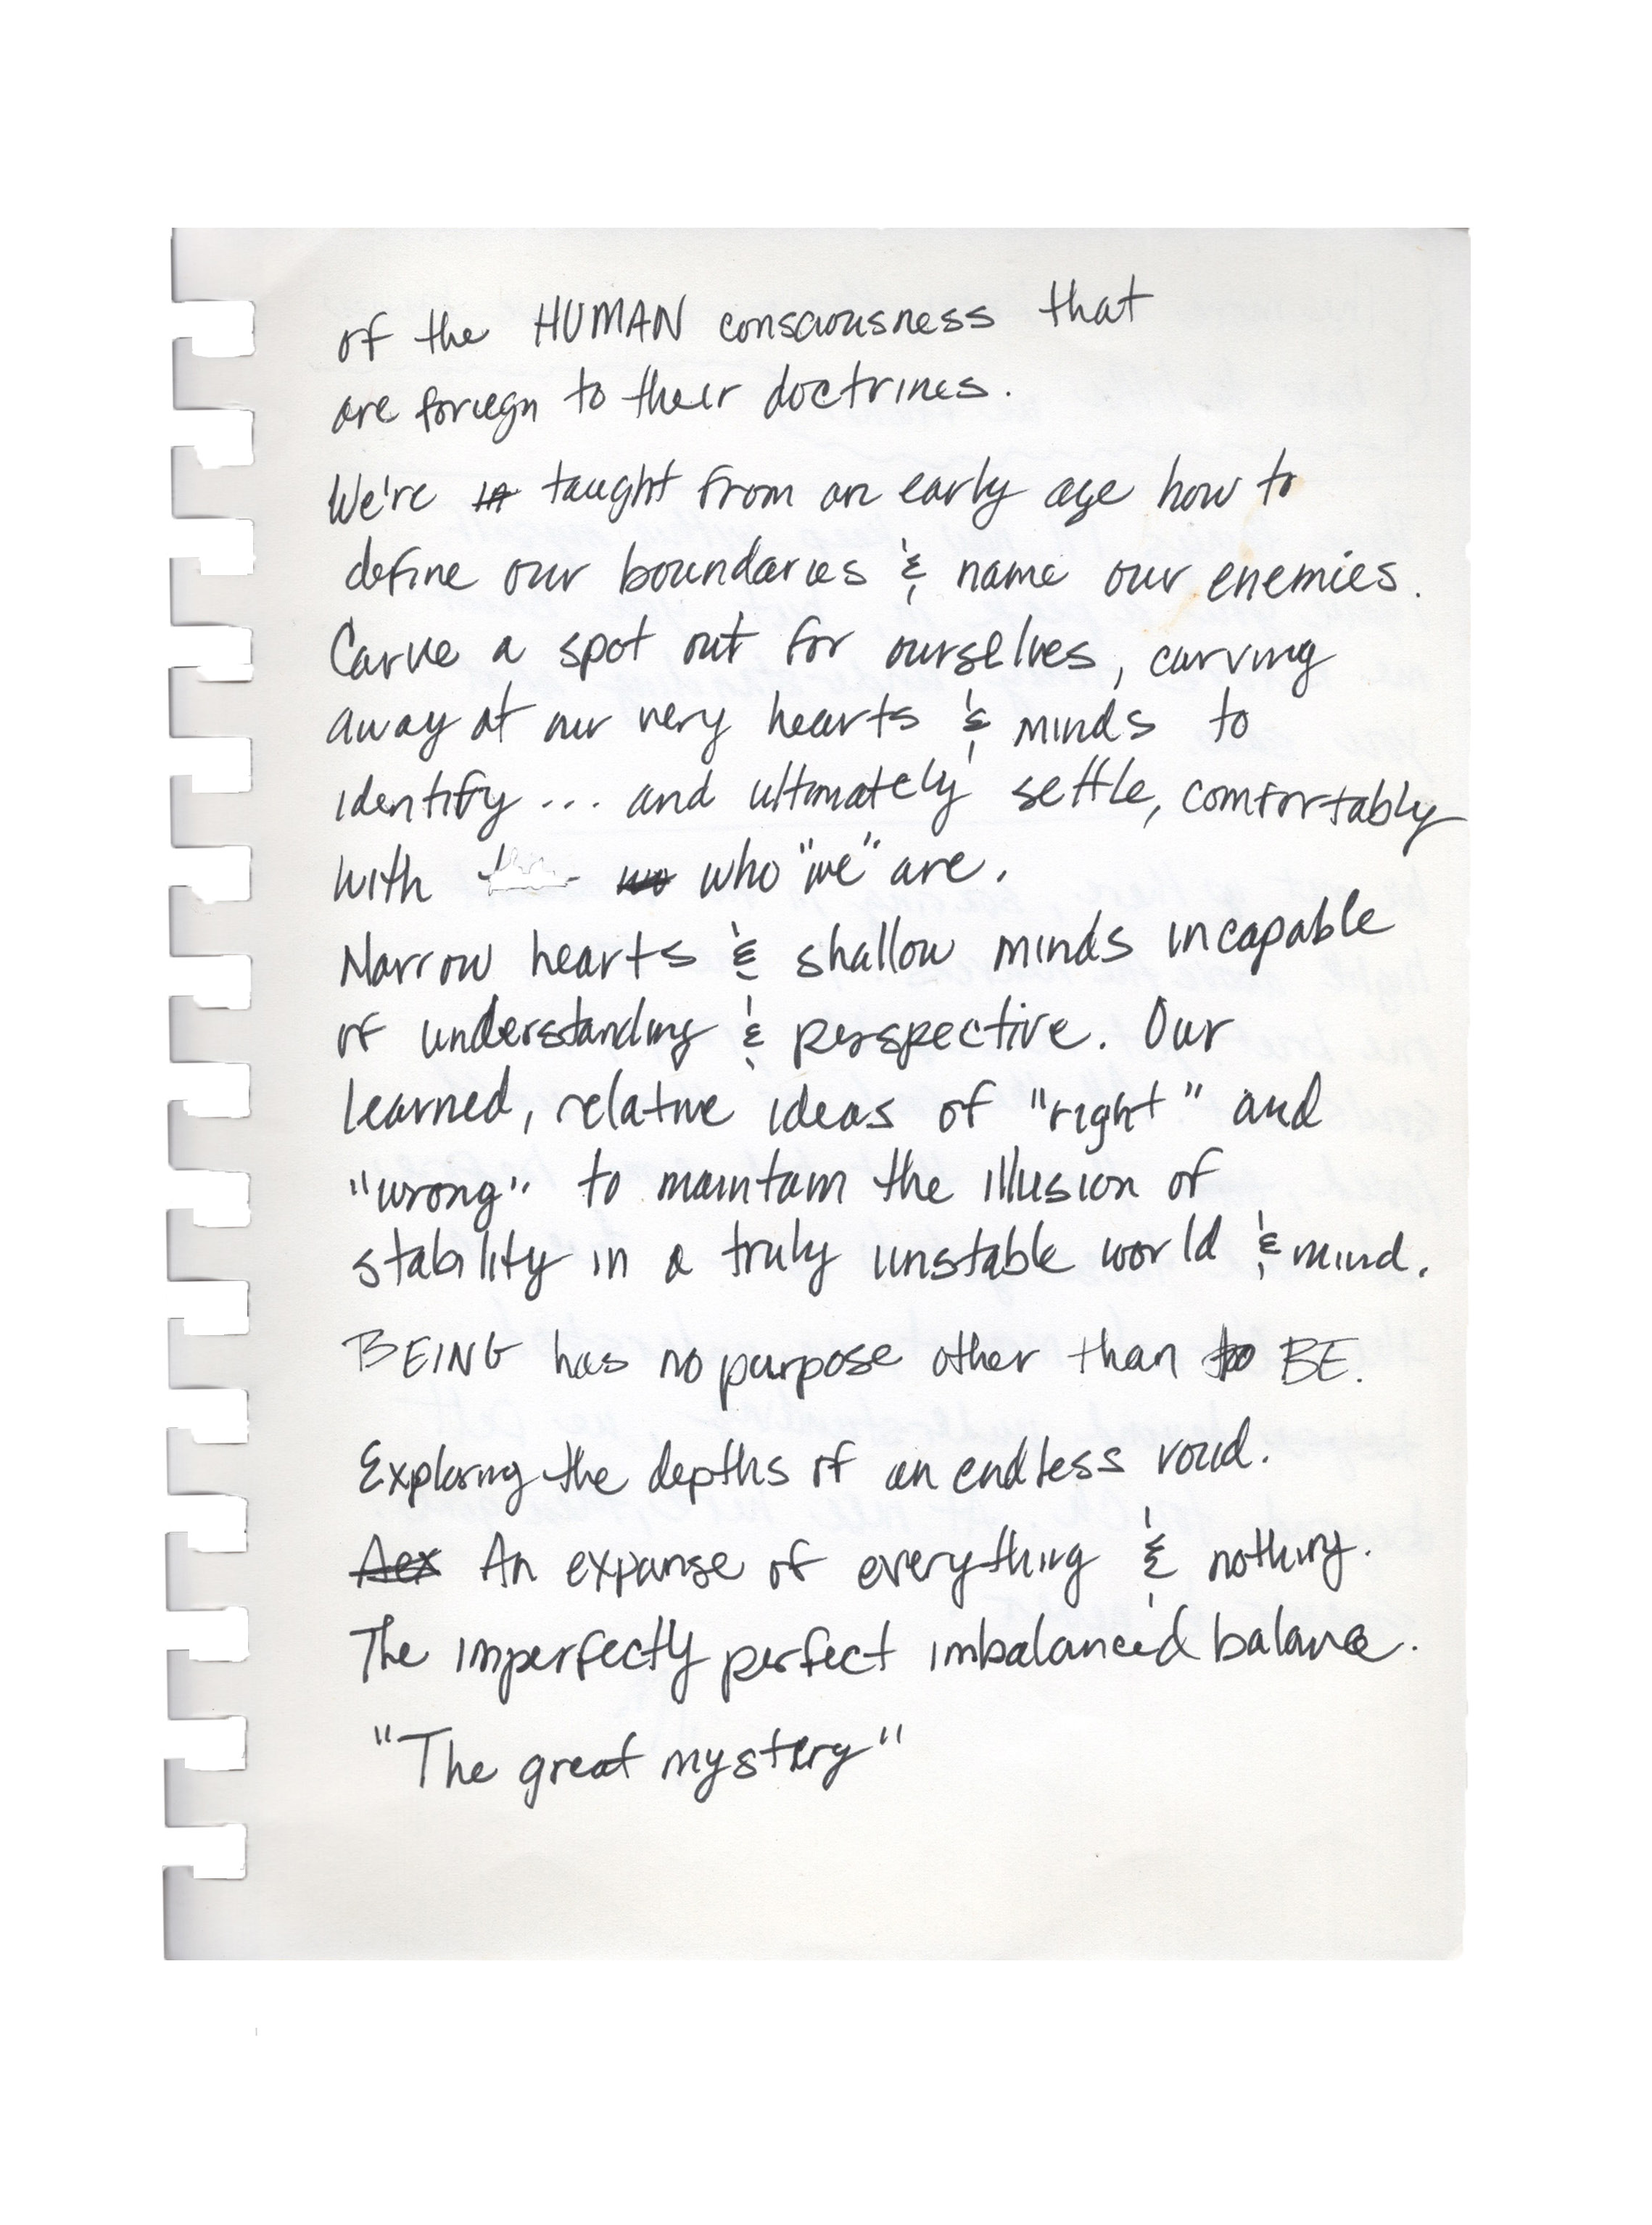 of the HUMAN consciousness that
are foriegn to their doctrines.
We're taught from an early age how to
define our boundaries & name our enemies.
Carve a spot out for ourselves, carving
away at our very hearts & minds to
identify... and ultimately settle, comfortably
with who "we" are.
Narrow hearts & shallow minds incapable
of understanding & perspective. Our
learned, relative ideas of "right" and
"wrong" to maintain the illusion of
stability in a truly unstable world & mind.
BEING has no purpose other than to BE.
Exploring the depths of an endless void.
An expanse of everything & nothing.
The imperfectly perfect imbalanced balance.
"The great mystery"